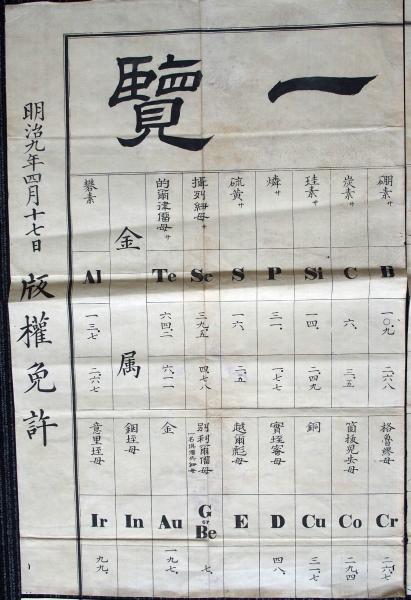 一覽
硼素サ
B
一〇、九
二、六八
炭素サ
C
六、
三、五
珪素サ
Si
一四、
二、四九
燐サ
P
三一、
一、七七
硫黄サ
S
一六、
二、五
攝列紐母サ
Se
三九、五
四、七八
的爾律僞母サ
Te
六四、二
六、一一
金属
礬素
Al
一三、七
二、六七
Cr
二六、七
Co
二九、四
銅
Cu
三一、七
D
四八、
越爾彪母
E
別利爾僞母
G
or
Be
七、
金
Au
一九七、
銦垤母
In
意里垤母
Ir
九九、
明治九年四月十七日
版權免許